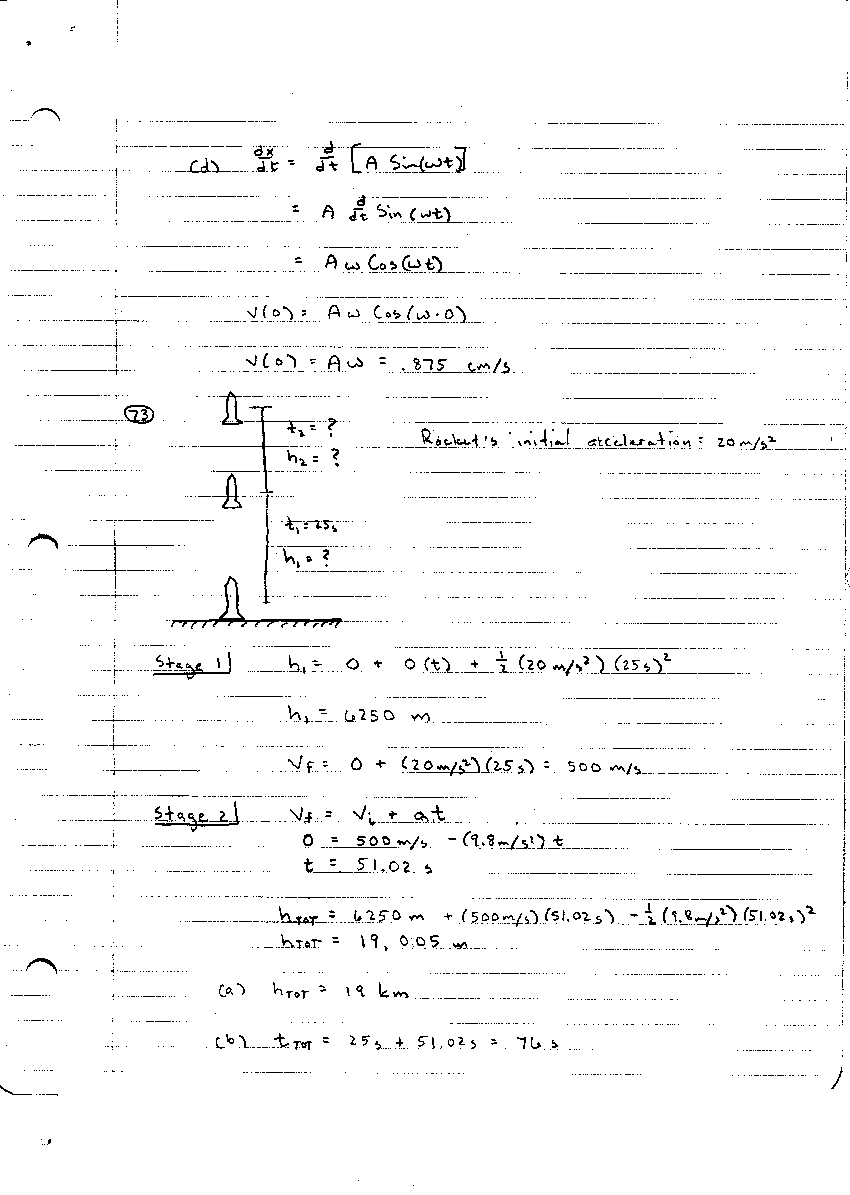 (d) dx/dt = d/dt [A Sin(ωt)]
= A d/dt Sin(ωt)
= Aω Cos(ωt)
V(0) = Aω Cos(ω·0)
V(0) = Aω = .875 cm/s
73
t₂ = ?
Rocket's initial acceleration = 20 m/s²
h₂ = ?
t₁ = 25s
h₁ = ?
Stage 1 h₁ = 0 + 0(t) + ½(20 m/s²)(25s)²
h₁ = 6250 m
Vf = 0 + (20 m/s²)(25s) = 500 m/s
Stage 2 Vf = Vi + at
0 = 500 m/s - (9.8 m/s²)t
t = 51.02 s
hTOT = 6250 m + (500 m/s)(51.02s) - ½(9.8 m/s²)(51.02s)²
hTOT = 19,005 m
(a) hTOT = 19 km
(b) tTOT = 25s + 51.02s = 76s